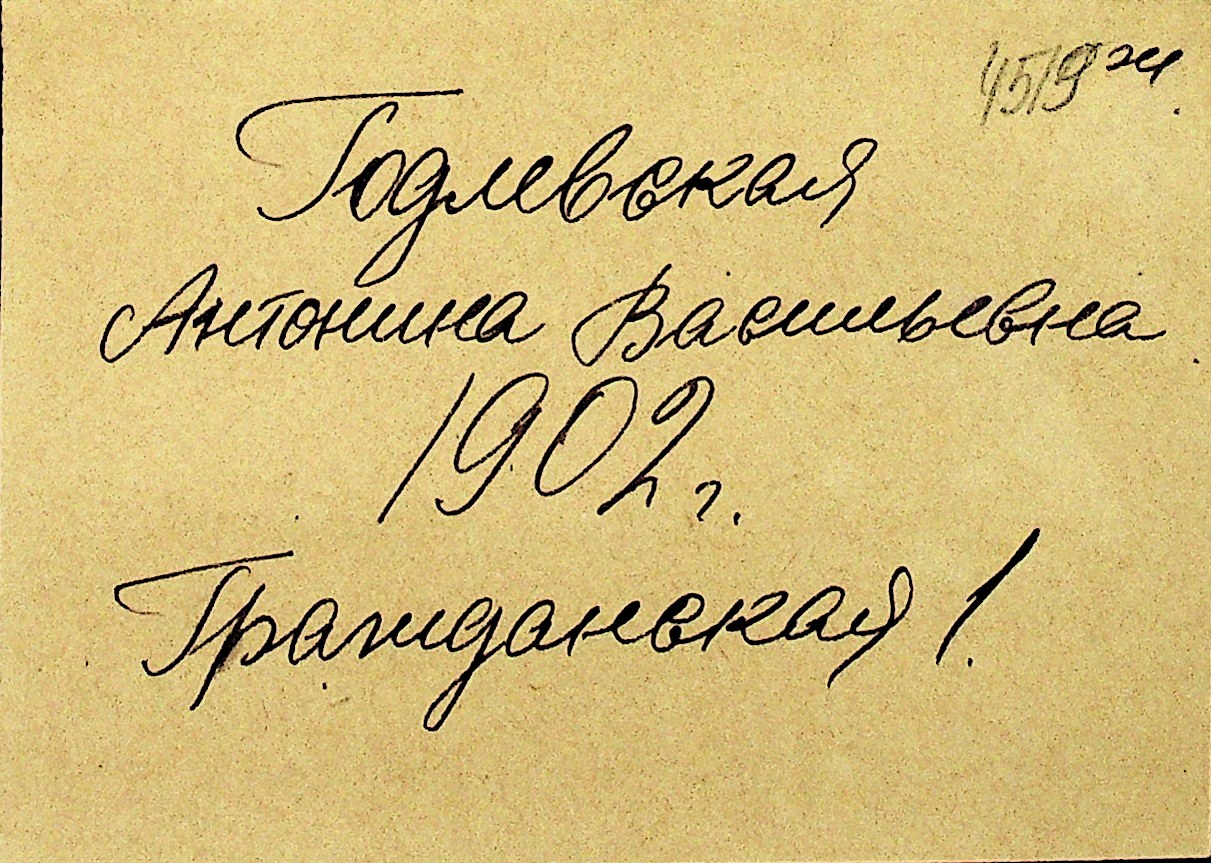 4519 ж.
Годлевская
Антонина Васильевна
1902 г.
Гражданская 1.